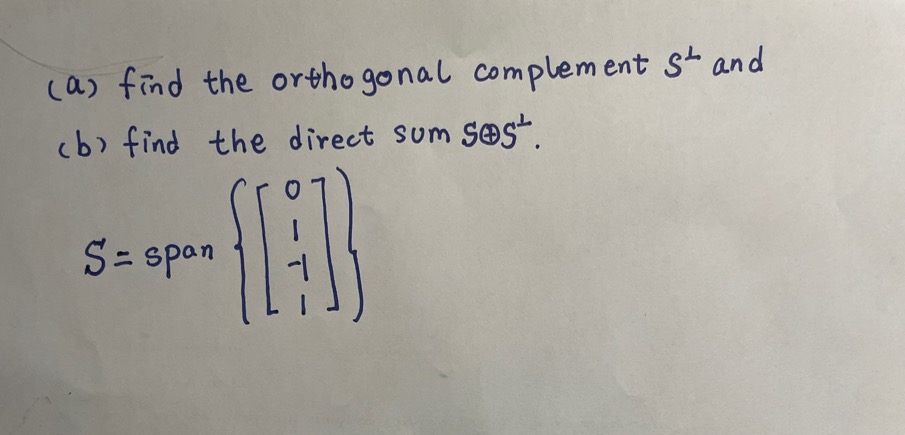 (a) find the orthogonal complement S⊥ and
(b) find the direct sum S⊕S⊥.
S = span {[0
1
-1
1]}